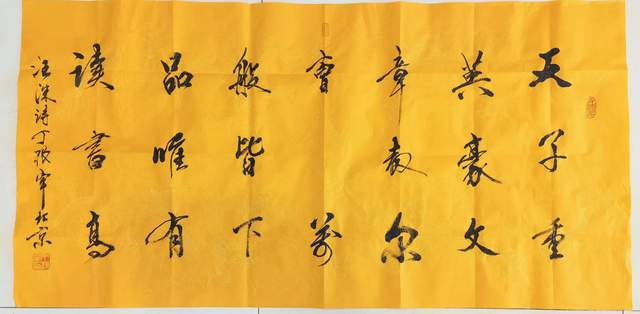 天子重
英豪文
章教尔
曹萬
般皆下
品唯有
读書高
诗丁 北京